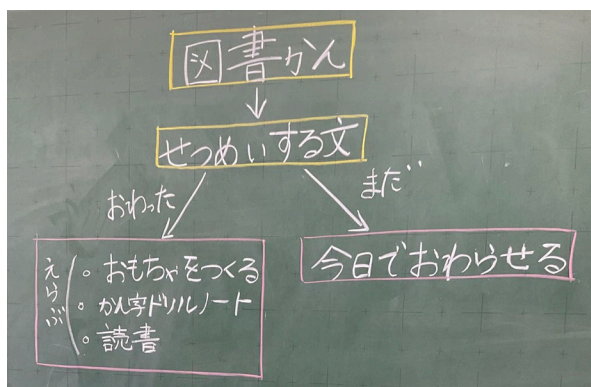 図書かん
せつめいする文
おわった
まだ
えらぶ
・おもちゃをつくる
・かん字ドリルノート
・読書
今日でおわらせる